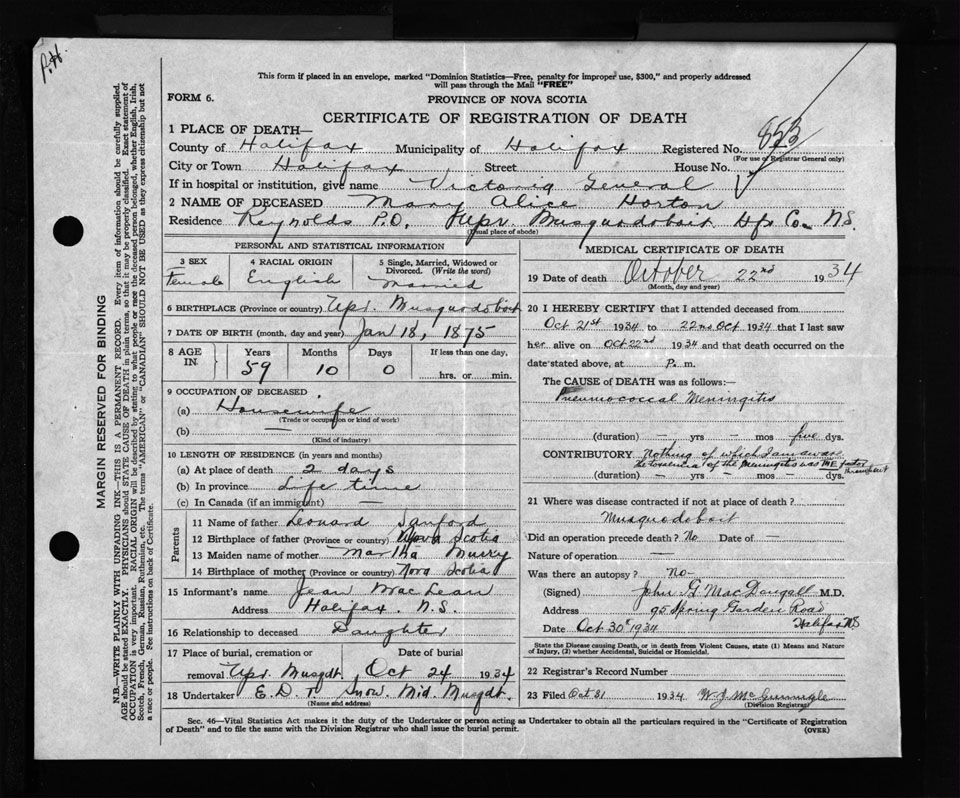 P.H.
This form if placed in an envelope, marked "Dominion Statistics—Free, penalty for improper use, $300," and properly addressed
will pass through the Mail "FREE"
FORM 6.
PROVINCE OF NOVA SCOTIA
CERTIFICATE OF REGISTRATION OF DEATH
1 PLACE OF DEATH—
853
County of Halifax Municipality of Halifax Registered No.
(For use of Registrar General only)
City or Town Halifax Street House No.
If in hospital or institution, give name Victoria General
2 NAME OF DECEASED Mary Alice Horton
Residence Reynolds P.O. Upr. Musquodoboit Hfx Co. N.S.
(Usual place of abode)
PERSONAL AND STATISTICAL INFORMATION
3 SEX
Female
4 RACIAL ORIGIN
English
5 Single, Married, Widowed or
Divorced. (Write the word)
Married
6 BIRTHPLACE (Province or country) Upr. Musquodoboit
7 DATE OF BIRTH (month, day and year) Jan 18, 1875
8 AGE IN
Years Months Days If less than one day,
59 10 0 hrs. or min.
9 OCCUPATION OF DECEASED
(a) Housewife
(Trade or occupation or kind of work)
(b) —
(Kind of industry)
10 LENGTH OF RESIDENCE (in years and months)
(a) At place of death 2 days
(b) In province Life time
(c) In Canada (if an immigrant) —
Parents
11 Name of father Leonard Sanford
12 Birthplace of father (Province or country) Nova Scotia
13 Maiden name of mother Martha Murry
14 Birthplace of mother (Province or country) Nova Scotia
15 Informant's name Jean MacLean
Address Halifax, N.S.
16 Relationship to deceased Daughter
17 Place of burial, cremation or Date of burial
removal Upr. Musqdt. Oct 24 1934
18 Undertaker E. D. Snow, Mid. Musqdt.
(Name and address)
MEDICAL CERTIFICATE OF DEATH
19 Date of death October 22nd 1934
(Month, day and year)
20 I HEREBY CERTIFY that I attended deceased from
Oct 21st 1934 to 22nd Oct 1934 that I last saw
her alive on Oct 22nd 1934 and that death occurred on the
date stated above, at P. m.
The CAUSE of DEATH was as follows:—
Pneumococcal Meningitis
(duration) — yrs — mos five dys.
CONTRIBUTORY Nothing of which I am aware
of the Meningitis was
(duration) — yrs — mos — dys.
21 Where was disease contracted if not at place of death?
Musquodoboit
Did an operation precede death? No Date of —
Nature of operation —
Was there an autopsy? No
(Signed) John G MacDougall M.D.
Address 95 Spring Garden Road
Halifax NS
Date Oct 30th 1934
State the Disease causing Death, or in death from Violent Causes, state (1) Means and Nature
of Injury, (2) whether Accidental, Suicidal or Homicidal.
22 Registrar's Record Number
23 Filed Oct 31 1934 W. J.
(Division Registrar)
Sec. 46—Vital Statistics Act makes it the duty of the Undertaker or person acting as Undertaker to obtain all the particulars required in the "Certificate of Registration
of Death" and to file the same with the Division Registrar who shall issue the burial permit.
(OVER)
MARGIN RESERVED FOR BINDING
N.B.—WRITE PLAINLY WITH UNFADING INK—THIS IS A PERMANENT RECORD. Every item of information should be carefully supplied.
AGE should be stated EXACTLY. PHYSICIANS should STATE CAUSE OF DEATH in plain terms, so that it may be properly classified. Exact statement of
OCCUPATION is very important. RACIAL ORIGIN will be described by stating to what people or race the deceased person belonged, whether English, Irish,
Scotch, French, German, Russian, Ruthenian, etc. The terms "AMERICAN" or "CANADIAN" SHOULD NOT BE USED as they express citizenship but not
a race or people. See instructions on back of Certificate.